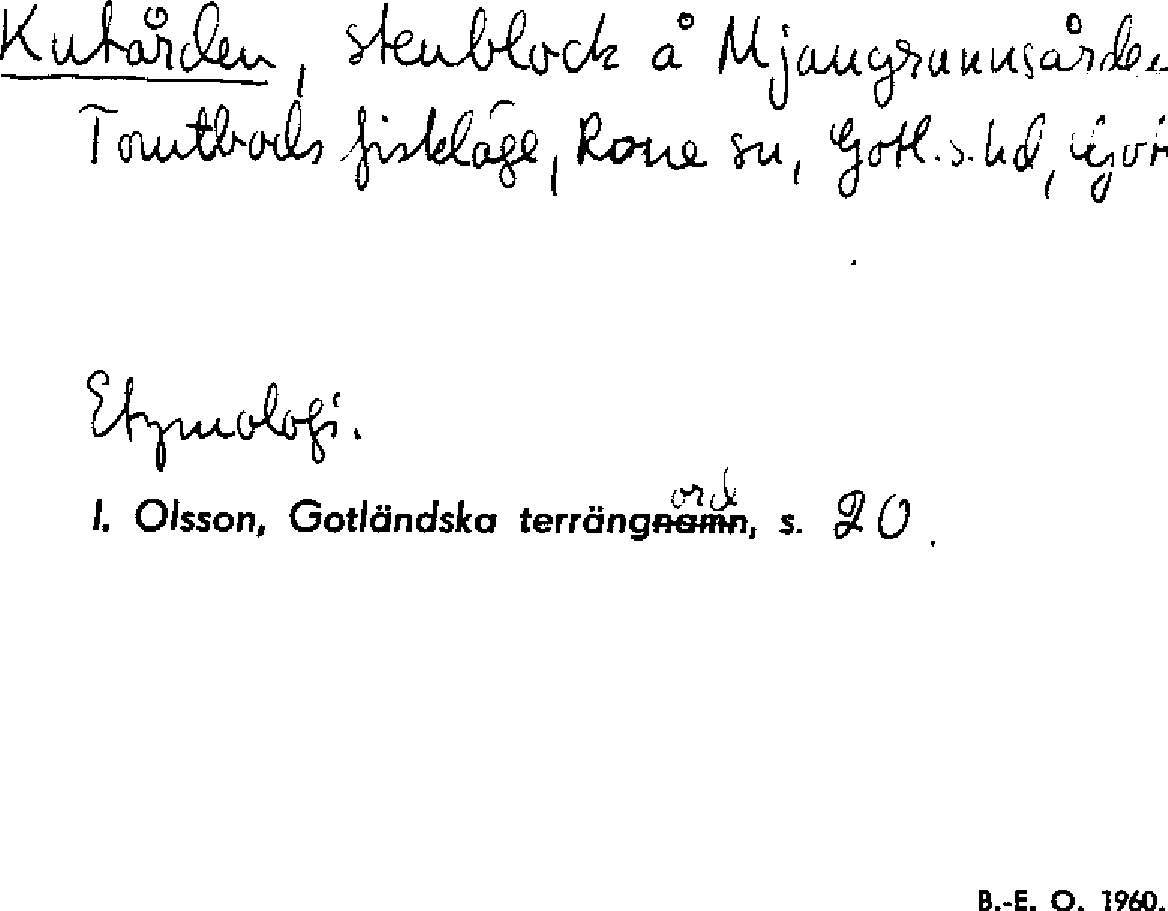 Kutården, stenblock å Mjaugrunnsården
Tomtbods fiskläge, Rone sn, Gotl. s. hd, Gotl
Etymologi.
I. Olsson, Gotländska terrängnamn ord, s. 20.
B.-E. O. 1960.